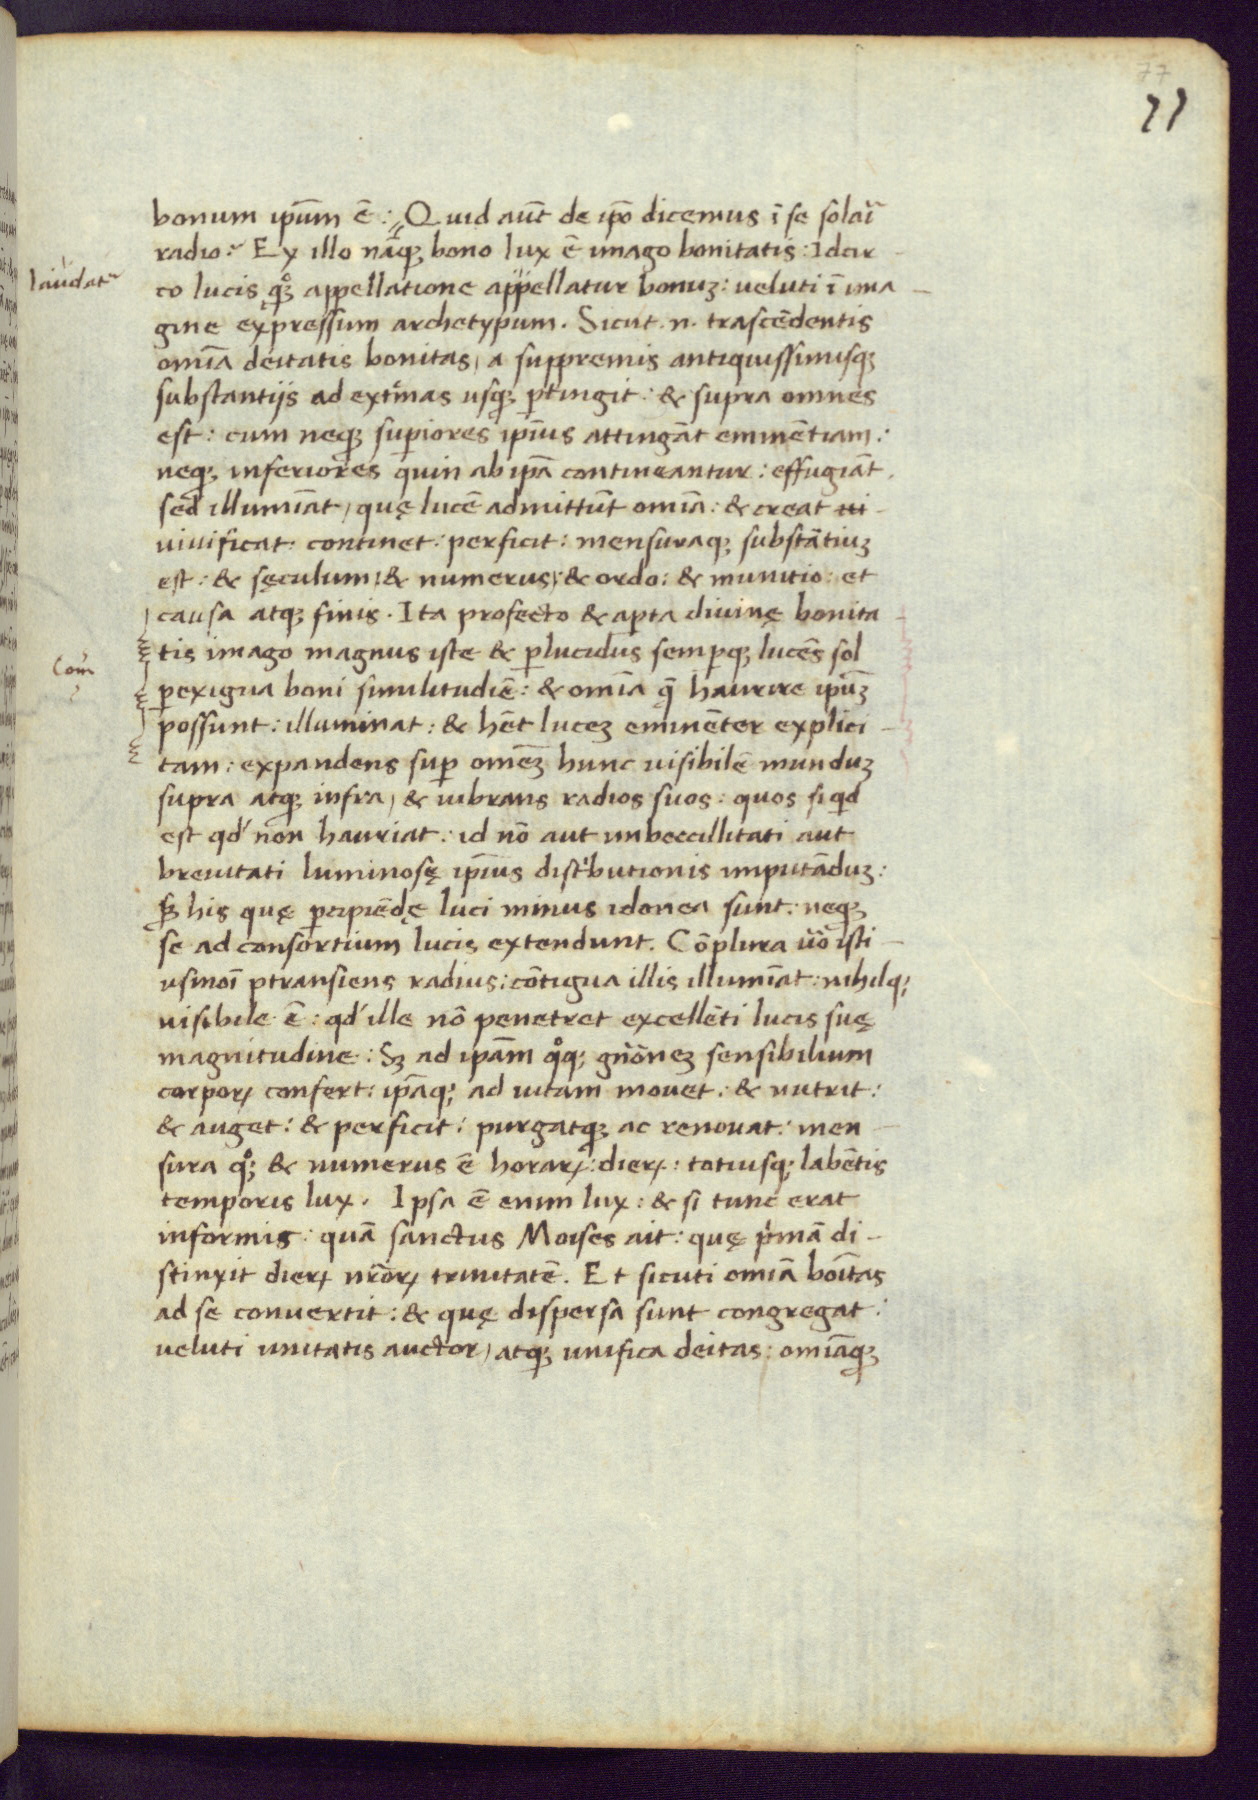 77
77
bonum ip̄um ē: Quid aūt de ip̄o dicemus ī se solari
radio? Ex illo nāq; bono lux ē imago bonitatis: Idcir-
laudat᷑
co lucis qͦq; appellatione appellatur bonuʒ: veluti ī ima-
gine expressum archetypum. Sicut .n. trascēdentis
omīa deitatis bonitas, a suppremis antiquissimisq;
substantijs ad extimas usq; ꝑtingit: & supra omnes
est: cum neq; suꝑiores ip̄ius attingāt eminētiam:
neq; inferiores quin ab ip̄a contineantur: effugiāt.
sed illumīat, quę lucē admittūt omīa: & creat
uiuificat: continet: perficit: mensuraq; substātiuʒ
est: & sęculum, & numerus, & ordo: & munitio: et
causa atq; finis. Ita profecto & aꝑta diuinę bonita-
tis imago magnus iste & ꝑlucidus semꝑq; lucēs sol
Com̄
ꝑexigua boni similitudīe: & omīa q̄ haurire ip̄uʒ
possunt: illuminat: & hēt luceʒ eminēter explici-
tam: expandens suꝑ omēʒ hunc uisibilē munduʒ
supra atq; infra, & uibrans radios suos: quos siqd
est qd' non hauriat: id nō aut imbecillitati aut
breuitati luminosę ip̄ius distⁱbutionis imputāduʒ:
sʒ his quę ꝑcipiēdę luci minus idonea sunt: neq;
se ad consortium lucis extendunt. Cōplura u̇o isti-
usmōi ꝑtransiens radius: cōtigua illis illumīat: nihilq;
uisibile ē: qd' ille nō penetret excellēti lucis suę
magnitudine: Sʒ ad ip̄am qͦq; gn̄ōneʒ sensibilium
corporꝝ confert: ip̄aq; ad uitam mouet: & nutrit:
& auget: & perficit: purgatq; ac renouat: men-
sura qͦq; & numerus ē horarꝝ: dierꝝ: totiusq; labētis
temporis lux. Ipsa ē enim lux: & si tunc erat
informis: quā sanctus Moises ait: quę pⁱmā di-
stinxit dierꝝ nr̄orꝝ trinitatē. Et sicuti omīa boītas
ad se conuertit: & quę dispersa sunt congregat:
ueluti unitatis auctor, atq; unifica deitas: omīaq;